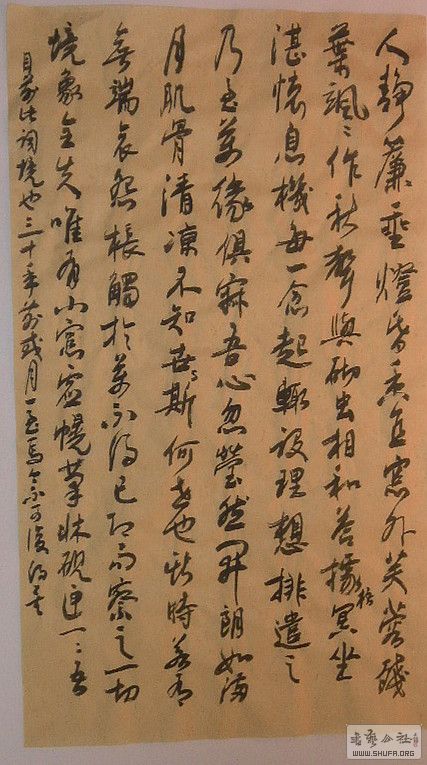 人静簾垂燈昏香直窓外芙蓉殘
葉颯〻作秋聲與砌虫相和荅據梧冥坐
湛懐息機每一念起輒設理想排遣之
乃至萬緣俱寂吾心忽瑩然開朗如滿
月肌骨清凉不知斯世何世也斯時若有
無端哀怨棖觸於萬不得已即而察之一切
境象全失唯有小窓虚幌筆牀硯匣一〻在吾
目前此詞境也三十年前或月一至焉今不可復得矣
書藝公社
WWW.SHUFA.ORG